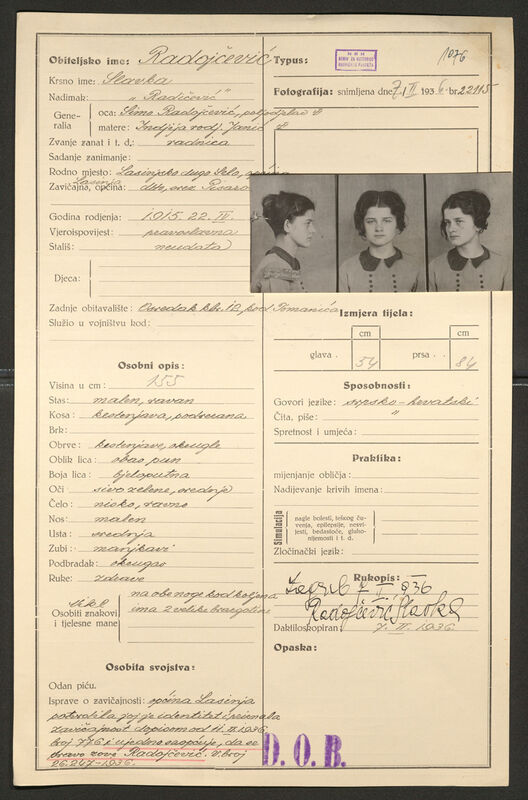 1076
Obiteljsko ime: Radojčević
Krsno ime: Slavka
Nadimak: "Radičević"
Generalia
oca: Simo Radojčević,
matere: Indjija rodj. Janić
Zvanje zanat i t. d.: radnica
Sadanje zanimanje:
Rodno mjesto: Lasinjsko dugo Selo, općina
Lasinja
Zavičajna, općina: dto, srez Pisarovina
Godina rodjenja: 1915. 22. IV.
Vjeroispovijest: pravoslavna
Stališ: neudata
Djeca:
Zadnje obitavalište: Osredak kbr. 12, kod Tomanića
Služio u vojništvu kod:
Osobni opis:
Visina u cm: 155
Stas: malen, ravan
Kosa: kestenjava, podrezana
Brk:
Obrve: kestenjave, okrugle
Oblik lica: obao pun
Boja lica: bjeloputna
Oči: sivo zelene, srednje
Čelo: nisko, ravno
Nos: malen
Usta: srednja
Zubi: manjkavi
Podbradak: okrugao
Ruke: zdrave
Osobiti znakovi i tjelesne mane
na obe noge kod koljena
ima 2 velike brazgotine
Osobita svojstva:
Odan piću.
Isprave o zavičajnosti: općina Lasinja
potvrdila joj je identitet i priznala
zavičajnost dopisom od 11. II. 1936,
broj 776 i ujedno saopćuje, da se
pravo zove Radojčević. V. broj
26.247-1936.
Typus:
NRH
ARHIV ZA HISTORIJU
RADNIČKOG POKRETA
Fotografija: snimljena dne 7. II 1936. br. 22115
Izmjera tijela:
cm cm
glava . 54 prsa . . 84
Sposobnosti:
Govori jezike: srpsko-hrvatski
Čita, piše: "
Spretnost i umjeća:
Praktika:
mijenjanje obličja:
Nadijevanje krivih imena:
Simulacija
nagle bolesti, teškog čuvenja, epilepsije, nesvijesti, bedastoće, gluhonijemosti i t. d.
Zločinački jezik:
Rukopis:
Zagreb 7 II 936
Radojčević Slavka
Daktiloskopiran: 7. II. 1936.
Opaska:
D. O. B.